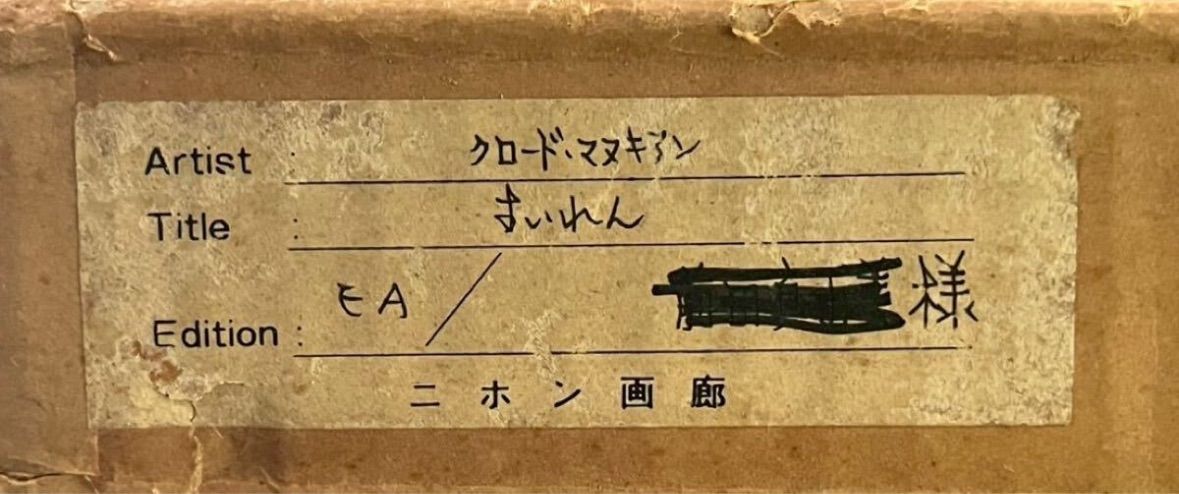 Artist : クロード・マヌキアン
Title : すいれん
Edition : EA / 様
ニホン画廊